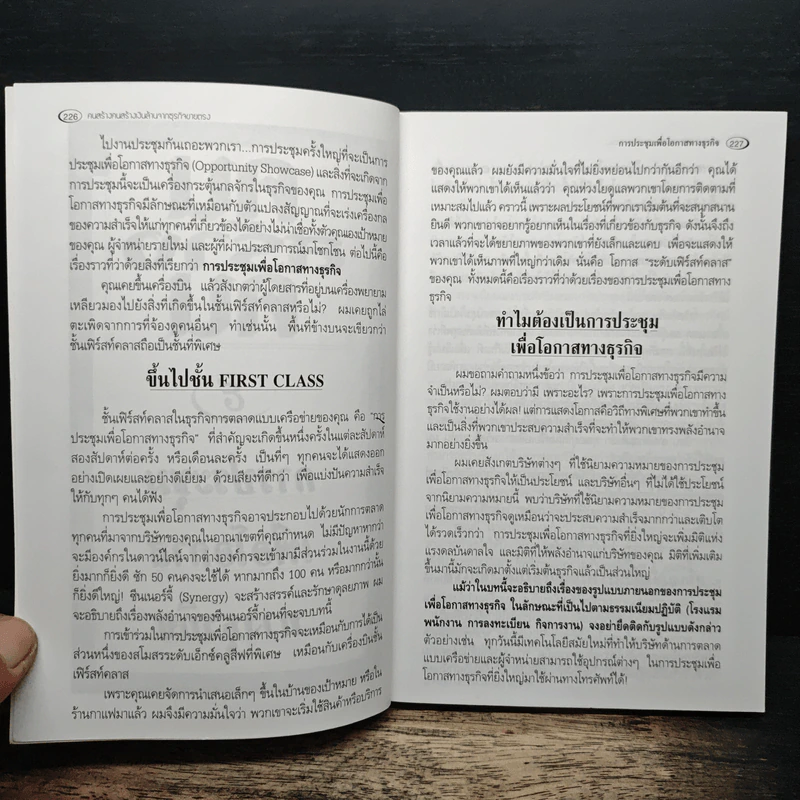 226 คนสร้างคนสร้างเงินล้านจากธุรกิจขายตรง
ไปงานประชุมกันเถอะพวกเรา...การประชุมครั้งใหญ่ที่จะเป็นการ
ประชุมเพื่อโอกาสทางธุรกิจ (Opportunity Showcase) และสิ่งที่จะเกิดจาก
การประชุมนี้จะเป็นเครื่องกระตุ้นกลจักรในธุรกิจของคุณ การประชุมเพื่อ
โอกาสทางธุรกิจมีลักษณะที่เหมือนกับตัวแปลงสัญญาณที่จะเร่งเครื่องกล
ของความสำเร็จให้แก่ทุกคนที่เกี่ยวข้องได้อย่างไม่น่าเชื่อทั้งตัวคุณเองเป้าหมาย
ของคุณ ผู้จำหน่ายรายใหม่ และผู้ที่ผ่านประสบการณ์มาโชกโชน ต่อไปนี้คือ
เรื่องราวที่ว่าด้วยสิ่งที่เรียกว่า การประชุมเพื่อโอกาสทางธุรกิจ
คุณเคยขึ้นเครื่องบิน แล้วสังเกตว่าผู้โดยสารที่อยู่บนเครื่องพยายาม
เหลียวมองไปยังสิ่งที่เกิดขึ้นในชั้นเฟิร์สท์คลาสหรือไม่? ผมเคยถูกไล่
ตะเพิดจากการที่จ้องดูคนอื่นๆ ทำเช่นนั้น พื้นที่ข้างบนจะเขียวกว่า
ชั้นเฟิร์สท์คลาสถือเป็นชั้นที่พิเศษ
ขึ้นไปชั้น FIRST CLASS
ชั้นเฟิร์สท์คลาสในธุรกิจการตลาดแบบเครือข่ายของคุณ คือ "การ
ประชุมเพื่อโอกาสทางธุรกิจ" ที่สำคัญจะเกิดขึ้นหนึ่งครั้งในแต่ละสัปดาห์
สองสัปดาห์ต่อครั้ง หรือเดือนละครั้ง เป็นที่ๆ ทุกคนจะได้แสดงออก
อย่างเปิดเผยและอย่างดีเยี่ยม ด้วยเสียงที่ดีกว่า เพื่อแบ่งปันความสำเร็จ
ให้กับทุกๆ คนได้ฟัง
การประชุมเพื่อโอกาสทางธุรกิจอาจประกอบไปด้วยนักการตลาด
ทุกคนที่มาจากบริษัทของคุณในอาณาเขตที่คุณกำหนด ไม่มีปัญหาหากว่า
จะมีองค์กรในดาวน์ไลน์จากต่างองค์กรจะเข้ามามีส่วนร่วมในงานนี้ด้วย
ยิ่งมากก็ยิ่งดี ซัก 50 คนคงจะใช้ได้ หากมากถึง 100 คน หรือมากกว่านั้น
ก็ยิ่งดีใหญ่! ซีนเนอร์จี้ (Synergy) จะสร้างสรรค์และรักษาดุลยภาพ ผม
จะอธิบายถึงเรื่องพลังอำนาจของซีนเนอร์จี้ก่อนที่จะจบบทนี้
การเข้าร่วมในการประชุมเพื่อโอกาสทางธุรกิจจะเหมือนกับการได้เป็น
ส่วนหนึ่งของสโมสรระดับเอ็กซ์คลูสีฟที่พิเศษ เหมือนกับเครื่องบินชั้น
เฟิร์สท์คลาส
เพราะคุณเคยจัดการนำเสนอเล็กๆ ขึ้นในบ้านของเป้าหมาย หรือใน
ร้านกาแฟมาแล้ว ผมจึงมีความมั่นใจว่า พวกเขาจะเริ่มใช้สินค้าหรือบริการ
การประชุมเพื่อโอกาสทางธุรกิจ 227
ของคุณแล้ว ผมยังมีความมั่นใจที่ไม่ยิ่งหย่อนไปกว่ากันอีกว่า คุณได้
แสดงให้พวกเขาได้เห็นแล้วว่า คุณห่วงใยดูแลพวกเขาโดยการติดตามที่
เหมาะสมไปแล้ว คราวนี้ เพราะผลประโยชน์ที่พวกเราเริ่มต้นที่จะสนุกสนาน
ยินดี พวกเขาอาจอยากรู้อยากเห็นในเรื่องที่เกี่ยวข้องกับธุรกิจ ดังนั้นจึงถึง
เวลาแล้วที่จะได้ขยายภาพของพวกเขาที่ยังเล็กและแคบ เพื่อจะแสดงให้
พวกเขาได้เห็นภาพที่ใหญ่กว่าเดิม นั่นคือ โอกาส "ระดับเฟิร์สท์คลาส"
ของคุณ ทั้งหมดนี้คือเรื่องราวที่ว่าด้วยเรื่องของการประชุมเพื่อโอกาสทาง
ธุรกิจ
ทำไมต้องเป็นการประชุม
เพื่อโอกาสทางธุรกิจ
ผมขอถามคำถามหนึ่งข้อว่า การประชุมเพื่อโอกาสทางธุรกิจมีความ
จำเป็นหรือไม่? ผมตอบว่ามี เพราะอะไร? เพราะการประชุมเพื่อโอกาสทาง
ธุรกิจใช้งานอย่างได้ผล! แต่การแสดงโอกาสคือวิถีทางพิเศษที่พวกเขาทำขึ้น
และเป็นสิ่งที่พวกเขาประสบความสำเร็จที่จะทำให้พวกเขาทรงพลังอำนาจ
มากอย่างยิ่งขึ้น
ผมเคยสังเกตบริษัทต่างๆ ที่ใช้นิยามความหมายของการประชุม
เพื่อโอกาสทางธุรกิจให้เป็นประโยชน์ และบริษัทอื่นๆ ที่ไม่ได้ใช้ประโยชน์
จากนิยามความหมายนี้ พบว่าบริษัทที่ใช้นิยามความหมายของการประชุม
เพื่อโอกาสทางธุรกิจดูเหมือนว่าจะประสบความสำเร็จมากกว่า และเติบโต
ได้รวดเร็วกว่า การประชุมเพื่อโอกาสทางธุรกิจที่ยิ่งใหญ่จะเพิ่มมิติแห่ง
แรงดลบันดาลใจ และมิติที่ให้พลังอำนาจแก่บริษัทของคุณ มิติที่เพิ่มเติม
ขึ้นมานี้มักจะเกิดมาตั้งแต่เริ่มต้นธุรกิจแล้วเป็นส่วนใหญ่
แม้ว่าในบทนี้จะอธิบายถึงเรื่องของรูปแบบภายนอกของการประชุม
เพื่อโอกาสทางธุรกิจ ในลักษณะที่เป็นไปตามธรรมเนียมปฏิบัติ (โรงแรม
พนักงาน การลงทะเบียน กิจการงาน) จงอย่ายึดติดกับรูปแบบดังกล่าว
ตัวอย่างเช่น ทุกวันนี้มีเทคโนโลยีสมัยใหม่ที่ทำให้บริษัทด้านการตลาด
แบบเครือข่ายและผู้จำหน่ายสามารถใช้อุปกรณ์ต่างๆ ในการประชุมเพื่อ
โอกาสทางธุรกิจที่ยิ่งใหญ่มาใช้ผ่านทางโทรศัพท์ได้!